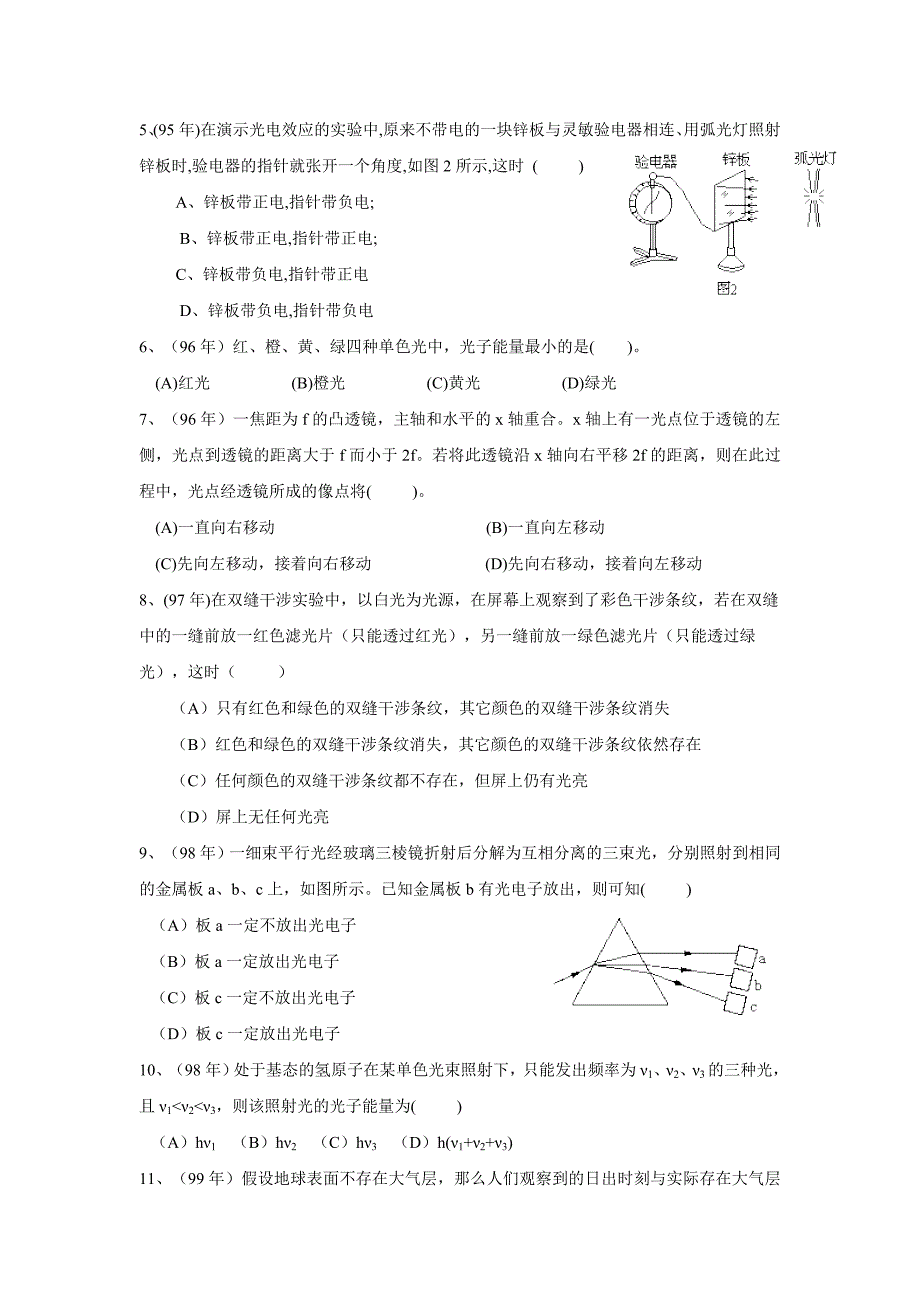 5、(95年)在演示光电效应的实验中,原来不带电的一块锌板与灵敏验电器相连、用弧光灯照射
锌板时,验电器的指针就张开一个角度,如图2所示,这时 (  )
验电器 锌板 弧光灯
A、锌板带正电,指针带负电;
B、锌板带正电,指针带正电;
C、锌板带负电,指针带正电
D、锌板带负电,指针带负电
图2
6、（96年）红、橙、黄、绿四种单色光中，光子能量最小的是(  )。
(A)红光 (B)橙光 (C)黄光 (D)绿光
7、（96年）一焦距为f的凸透镜，主轴和水平的x轴重合。x轴上有一光点位于透镜的左
侧，光点到透镜的距离大于f而小于2f。若将此透镜沿x轴向右平移2f的距离，则在此过
程中，光点经透镜所成的像点将(  )。
(A)一直向右移动 (B)一直向左移动
(C)先向左移动，接着向右移动 (D)先向右移动，接着向左移动
8、(97年)在双缝干涉实验中，以白光为光源，在屏幕上观察到了彩色干涉条纹，若在双缝
中的一缝前放一红色滤光片（只能透过红光），另一缝前放一绿色滤光片（只能透过绿
光），这时（  ）
（A）只有红色和绿色的双缝干涉条纹，其它颜色的双缝干涉条纹消失
（B）红色和绿色的双缝干涉条纹消失，其它颜色的双缝干涉条纹依然存在
（C）任何颜色的双缝干涉条纹都不存在，但屏上仍有光亮
（D）屏上无任何光亮
9、（98年）一细束平行光经玻璃三棱镜折射后分解为互相分离的三束光，分别照射到相同
的金属板a、b、c上，如图所示。已知金属板b有光电子放出，则可知(  )
（A）板a一定不放出光电子
（B）板a一定放出光电子
（C）板c一定不放出光电子
（D）板c一定放出光电子
a
b
c
10、（98年）处于基态的氢原子在某单色光束照射下，只能发出频率为ν₁、ν₂、ν₃的三种光，
且ν₁<ν₂<ν₃，则该照射光的光子能量为(  )
（A）hν₁ （B）hν₂ （C）hν₃ （D）h(ν₁+ν₂+ν₃)
11、（99年）假设地球表面不存在大气层，那么人们观察到的日出时刻与实际存在大气层